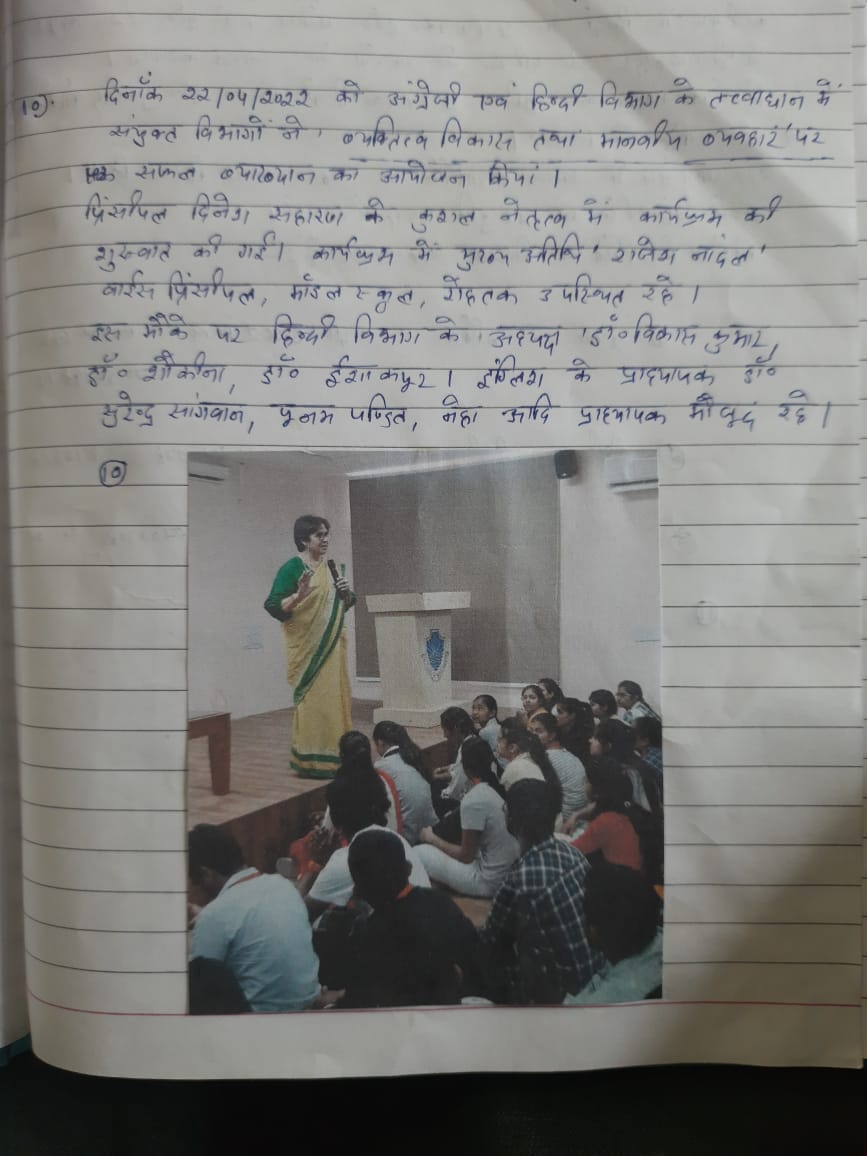 10). दिनाँक 22/04/2022 को अंग्रेजी एवं हिन्दी विभाग के तत्वाधान में
संयुक्त विभागों ने 'व्यक्तित्व विकास तथा मानवीय व्यवहार' पर
एक सफल व्याख्यान का आयोजन किया।
प्रिंसीपल दिनेश सहारण के कुशल नेतृत्व में कार्यक्रम की
शुरुवात की गई। कार्यक्रम में मुख्य अतिथि 'राजेश नांदल'
वाईस प्रिंसीपल, मॉडल स्कूल, रोहतक उपस्थित रहे।
इस मौके पर हिन्दी विभाग के अध्यक्ष डॉ० विकास कुमार,
डॉ० शौकीना, डॉ० ईशा कपूर। इंग्लिश के प्राध्यापक डॉ०
सुरेन्द्र सांगवान, पूनम पण्डित, नेहा आदि प्राध्यापक मौजूद रहे।
10